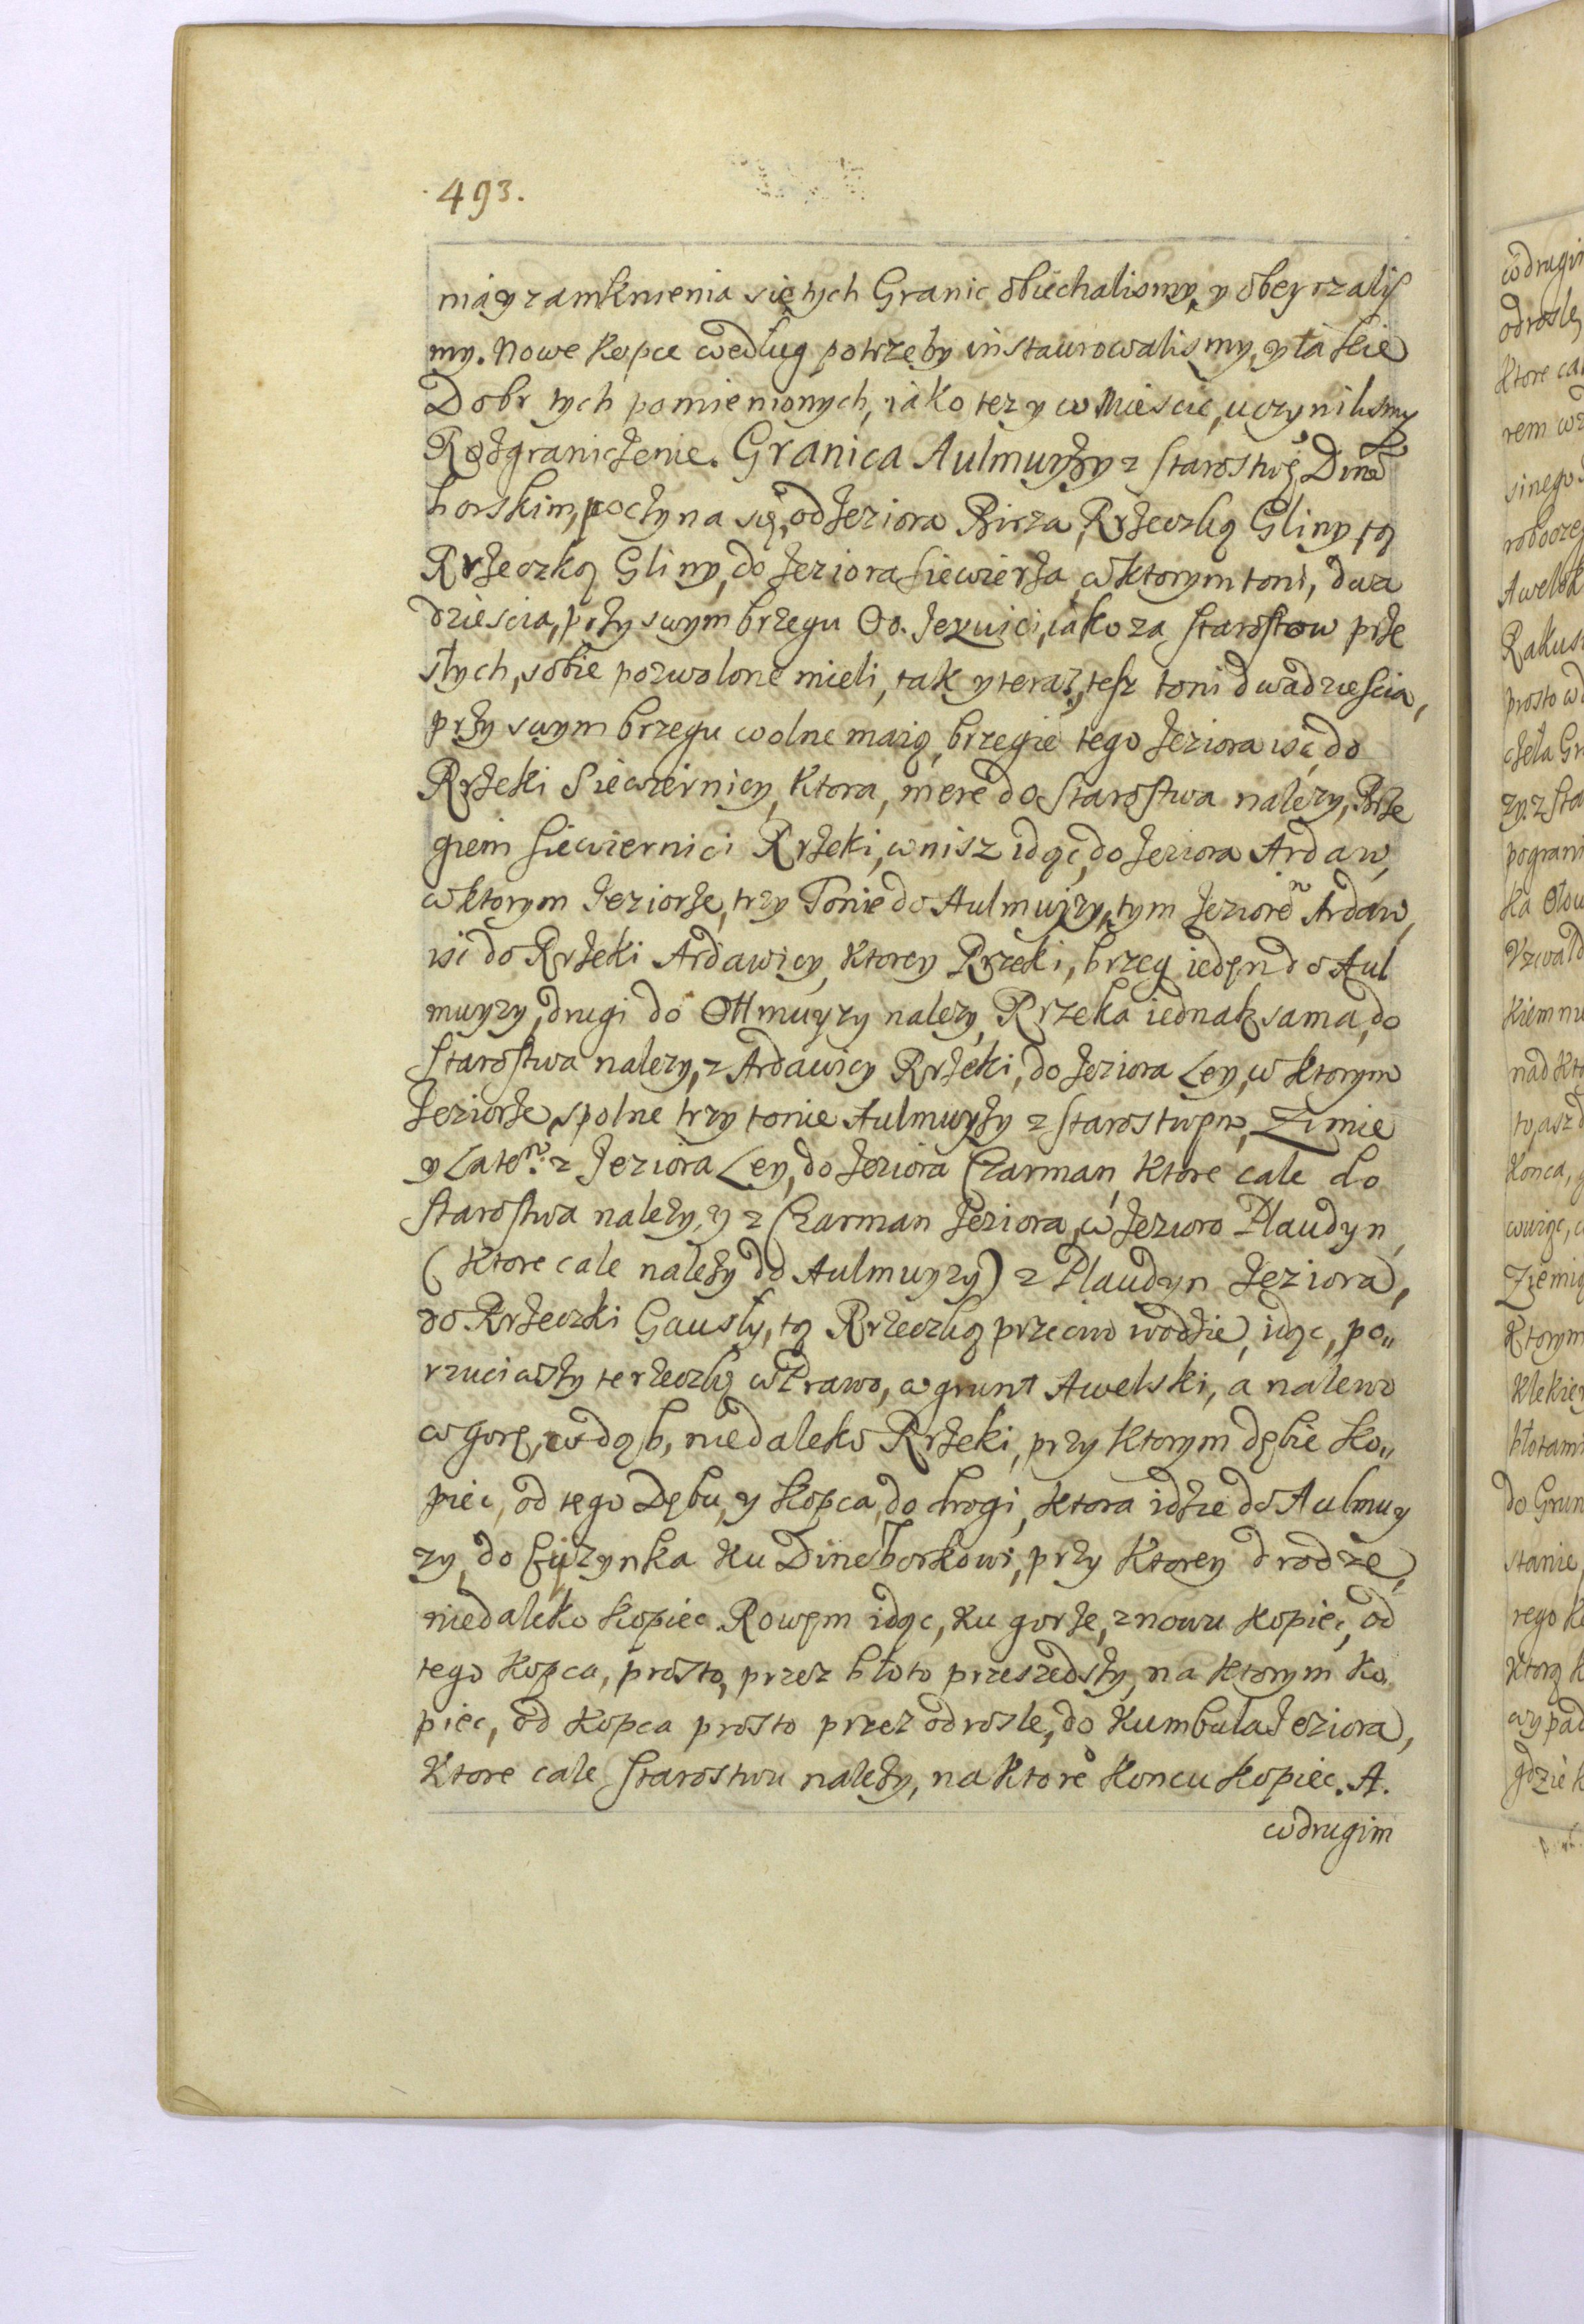 493.
nia, y zamknienia się tych Granic obiechalismy, y obeyrzalis
my. Nowe Kopce według potrzeby instaurowalismy, y takie
Dobr tych pomienionych, iako tez y w Miescie, uczynilismy
Rożgraniczenie. Granica Aulmuyży z Starostwē, Dine
borskim, poczyna się, od Jeziora Birża, Rrżeczką Gliny, tą
Rrżeczką Gliny, do Jeziora Siewierża, w ktorym toni, dwa
dziescia, przy swym brzegu Oo. Jezuici, iako za Starostow prze
szłych, sobie pozwolone mieli, tak y teraz, tesz toni dwadziescia,
przy swym brzegu wolne maią, brzegiē tego Jeziora isć do
Rrżeki Siewiernicy, Ktora, mere do Starostwa nalezy, Brze
giem Siewiernici Rrżeki, w nisz idąc, do Jeziora Ardaw,
w ktorym Jeziorze, trzy Tonie do Aulmuyzy, tym Jeziorem Ardaw,
isc do Rrżeki Ardawicy, Ktorey Rrzeki, brzeg ieden do Aul
muyzy, drugi do Ottmuyzy nalezy, Rrzeka iednak sama, do
Starostwa nalezy, z Ardawicy Rrżeki, do Jeziora Ley, w ktorym
Jeziorze, spolne trzy tonie Aulmuyży z Starostwem, Zimie
y Latem. z Jeziora Ley, do Jeziora Czarman, Ktore cale do
Starostwa należy, y z Czarman Jeziora, w Jezioro Plaudyn,
(Ktore cale należy do Aulmuyzy) z Plaudyn Jeziora,
do Rrżeczki Gausły, tą Rrzeczką przeciw wodzie, idąc, po„
rzuciwszy te rzeczkę w Prawo, w grunt Awelski, a nalewo
w gorę, w dąb, niedaleko Rrżeki, przy Ktorym dębie Ko„
piec, od tego Dębu, y Kopca, do drogi, Ktora idzie do Aulmuy
zy, do Łyzynka Ku Dineborkowi, przy Ktorey drodze,
niedaleko Kopiec. Rowem idąc, Ku gorze, znowu Kopiec, od
tego Kopca, prosto, przez błoto przeszedszy, na Ktorym Ko„
piec, od Kopca prosto przez odrosle, do Kumbula Jeziora,
Ktore cale Starostwu należy, na Ktorē Koncu Kopiec. A.
w drugim